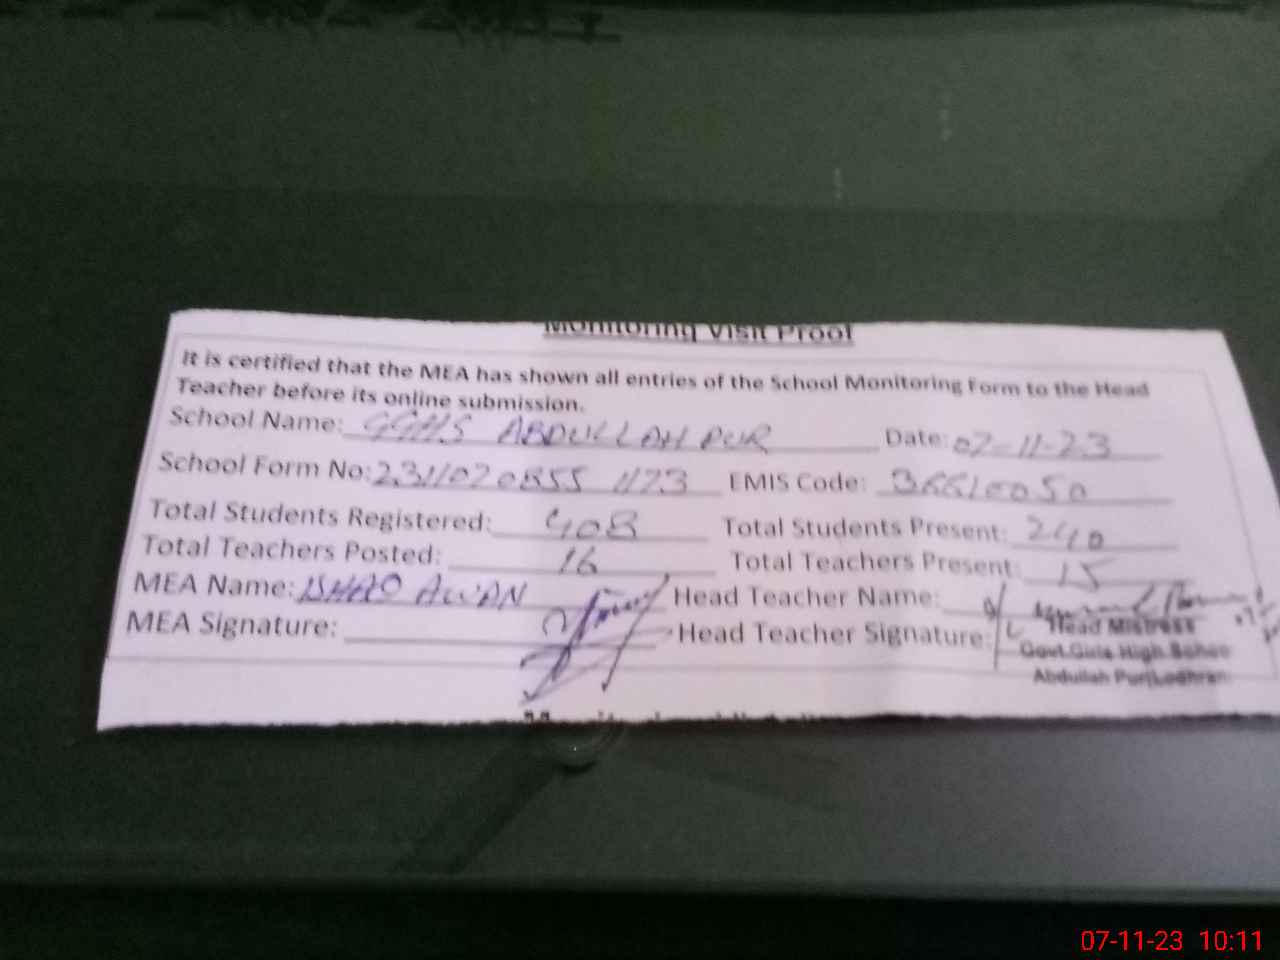 Monitoring Visit Proof
It is certified that the MEA has shown all entries of the School Monitoring Form to the Head
Teacher before its online submission.
School Name: GGHS ABDULLAH PUR Date: 07-11-23
School Form No: 2311070855 1173 EMIS Code: 36610050
Total Students Registered: 408 Total Students Present: 240
Total Teachers Posted: 16 Total Teachers Present: 15
MEA Name: ISHAQ AWAN Head Teacher Name:
MEA Signature: Head Teacher Signature:
Head Mistress
Govt.Girls High School
Abdullah Pur(Lodhran
07-11-23 10:11